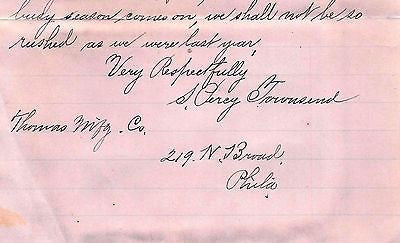 busy season, comes on, we shall not be so
rushed as we were last year,
Very Respectfully
S. Percy Townsend
Thomas Mfg. Co.
219. N. Broad.
Phila